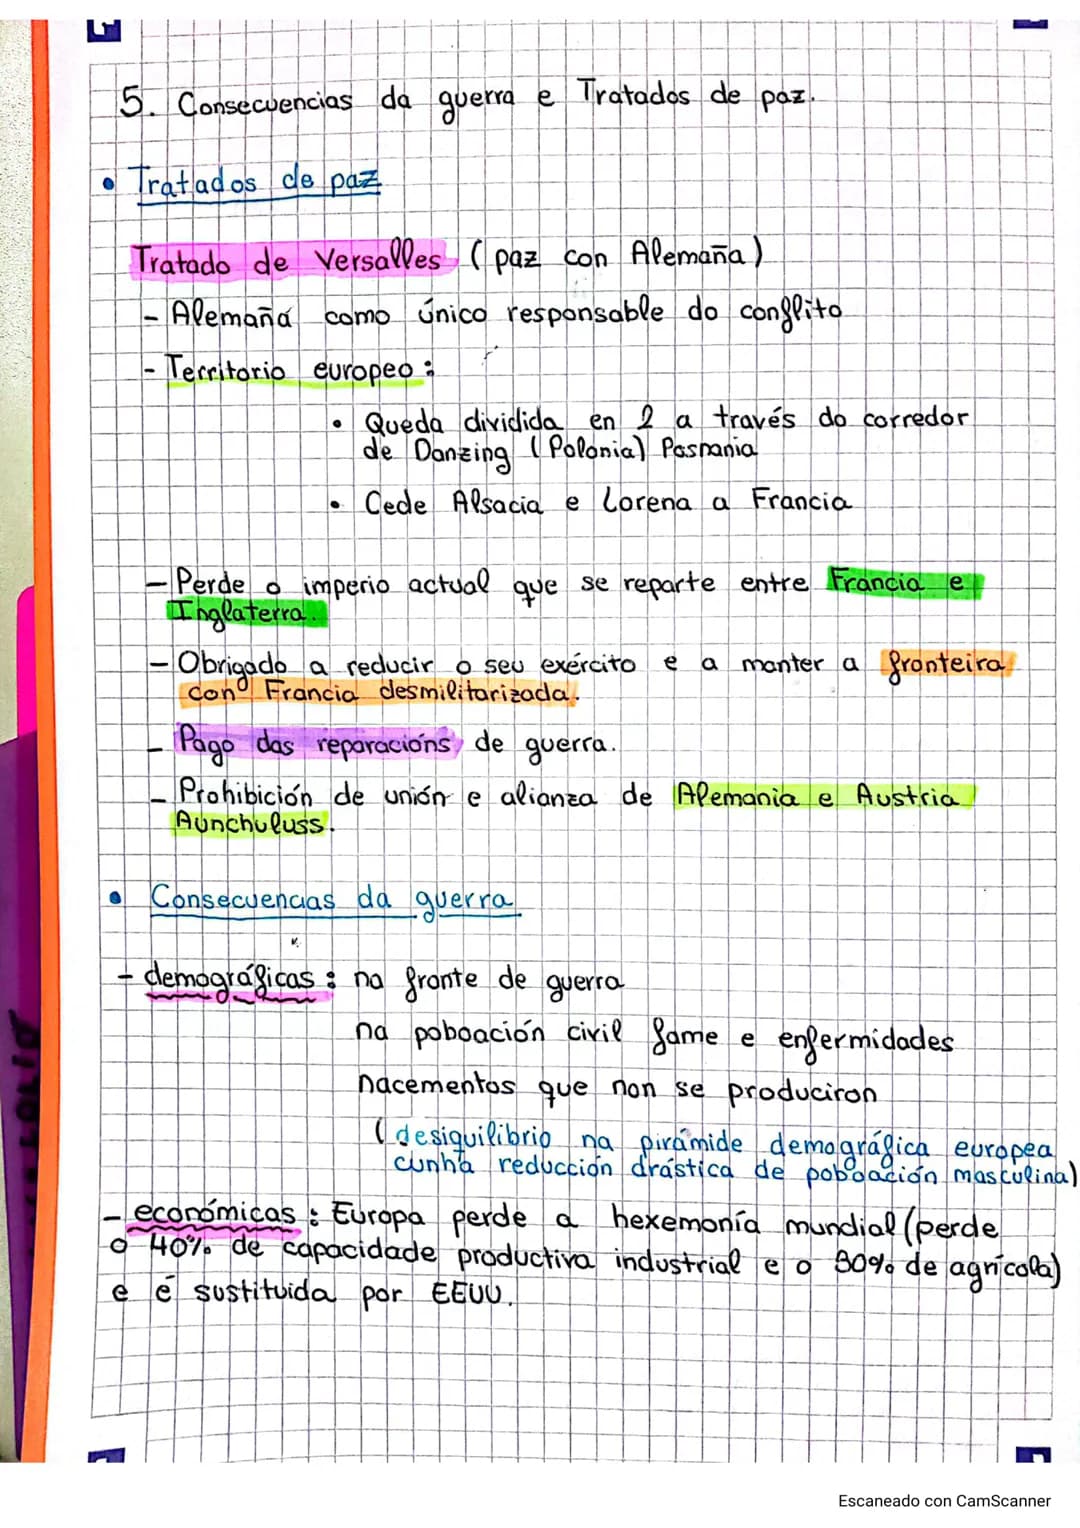 5. Consecuencias da guerra e Tratados de paz.
• Tratados de paz
Tratado de Versalles (paz con Alemaña)
- Alemaña como único responsable do conflito
- Territorio europeo:
• Queda dividida en 2 a través do corredor
de Danzing (Polonia) Posnania
• Cede Alsacia e Lorena a Francia
- Perde o imperio actual que se reparte entre Francia e
Inglaterra.
- Obrigado a reducir o seu exército e a manter a fronteira
con Francia desmilitarizada.
- Pago das reparacións de guerra.
- Prohibición de unión e alianza de Alemania e Austria
Aunchuluss.
• Consecuencias da guerra
- demográficas: na fronte de guerra
na poboación civil fame e enfermidades
nacementos que non se produciron
(desiquilibrio na pirámide demográfica europea
cunha reducción drástica de poboación masculina)
- económicas: Europa perde a hexemonía mundial (perde
o 40% de capacidade productiva industrial e o 30% de agrícola)
e é sustituida por EEUU.
Escaneado con CamScanner